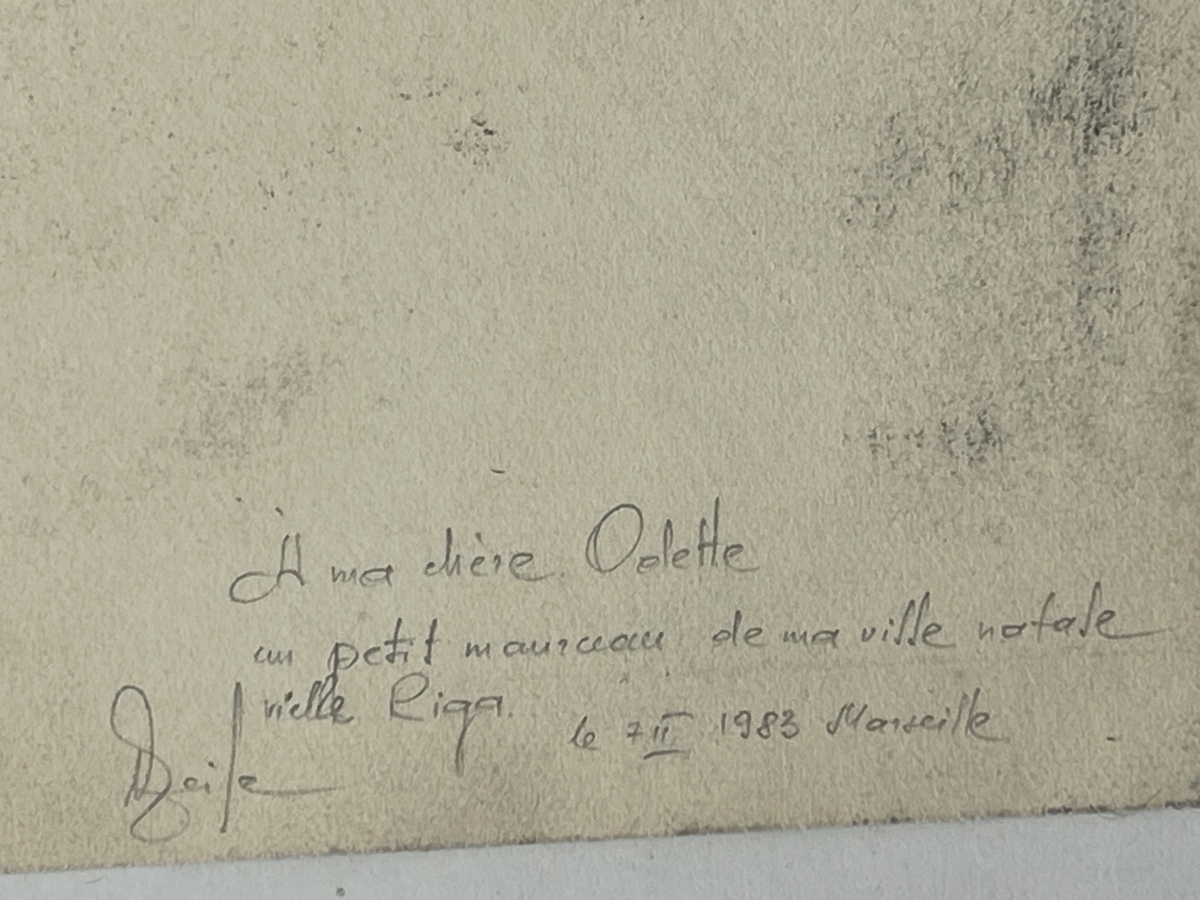 À ma chère Odette
un petit maurceau de ma ville natale
vielle Riga.
le 7 II 1983 Marseille